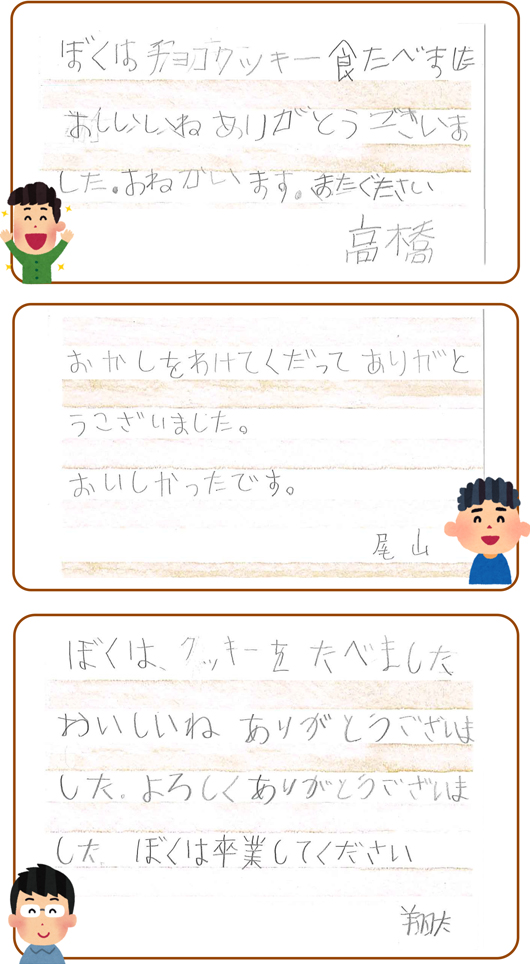 ぼくはチョコクッキー食たべました
おいしいね ありがとうございま
した。おねがいします。またください
高橋
おかしをわけてくだって ありがと
うこざいました。
おいしかったです。
尾山
ぼくは、クッキーを たべました
おいしいね ありがとうございま
した。よろしくありがとうございま
した ぼくは卒業してください
翔太